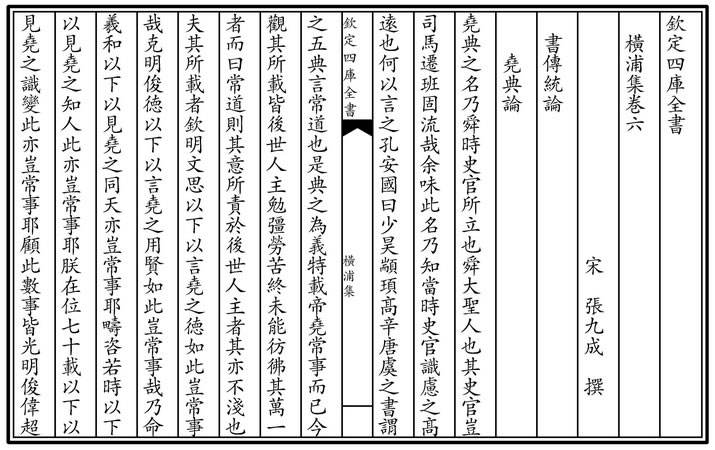 欽定四庫全書
橫浦集卷六
宋 張九成 撰
書傳統論
堯典論
堯典之名乃舜時史官所立也舜大聖人也其史官豈
司馬遷班固流哉余味此名乃知當時史官識慮之髙
逺也何以言之孔安國曰少昊顓頊髙辛唐虞之書謂
欽定四庫全書
橫浦集
之五典言常道也是典之為義特載帝堯常事而已今
觀其所載皆後世人主勉彊勞苦終未能彷彿其萬一
者而曰常道則其意所責於後世人主者其亦不淺也
夫其所載者欽明文思以下以言堯之德如此豈常事
哉克明俊德以下以言堯之用賢如此豈常事哉乃命
羲和以下以見堯之同天亦豈常事耶疇咨若時以下
以見堯之知人此亦豈常事耶朕在位七十載以下以
見堯之識變此亦豈常事耶顧此數事皆光明俊偉超